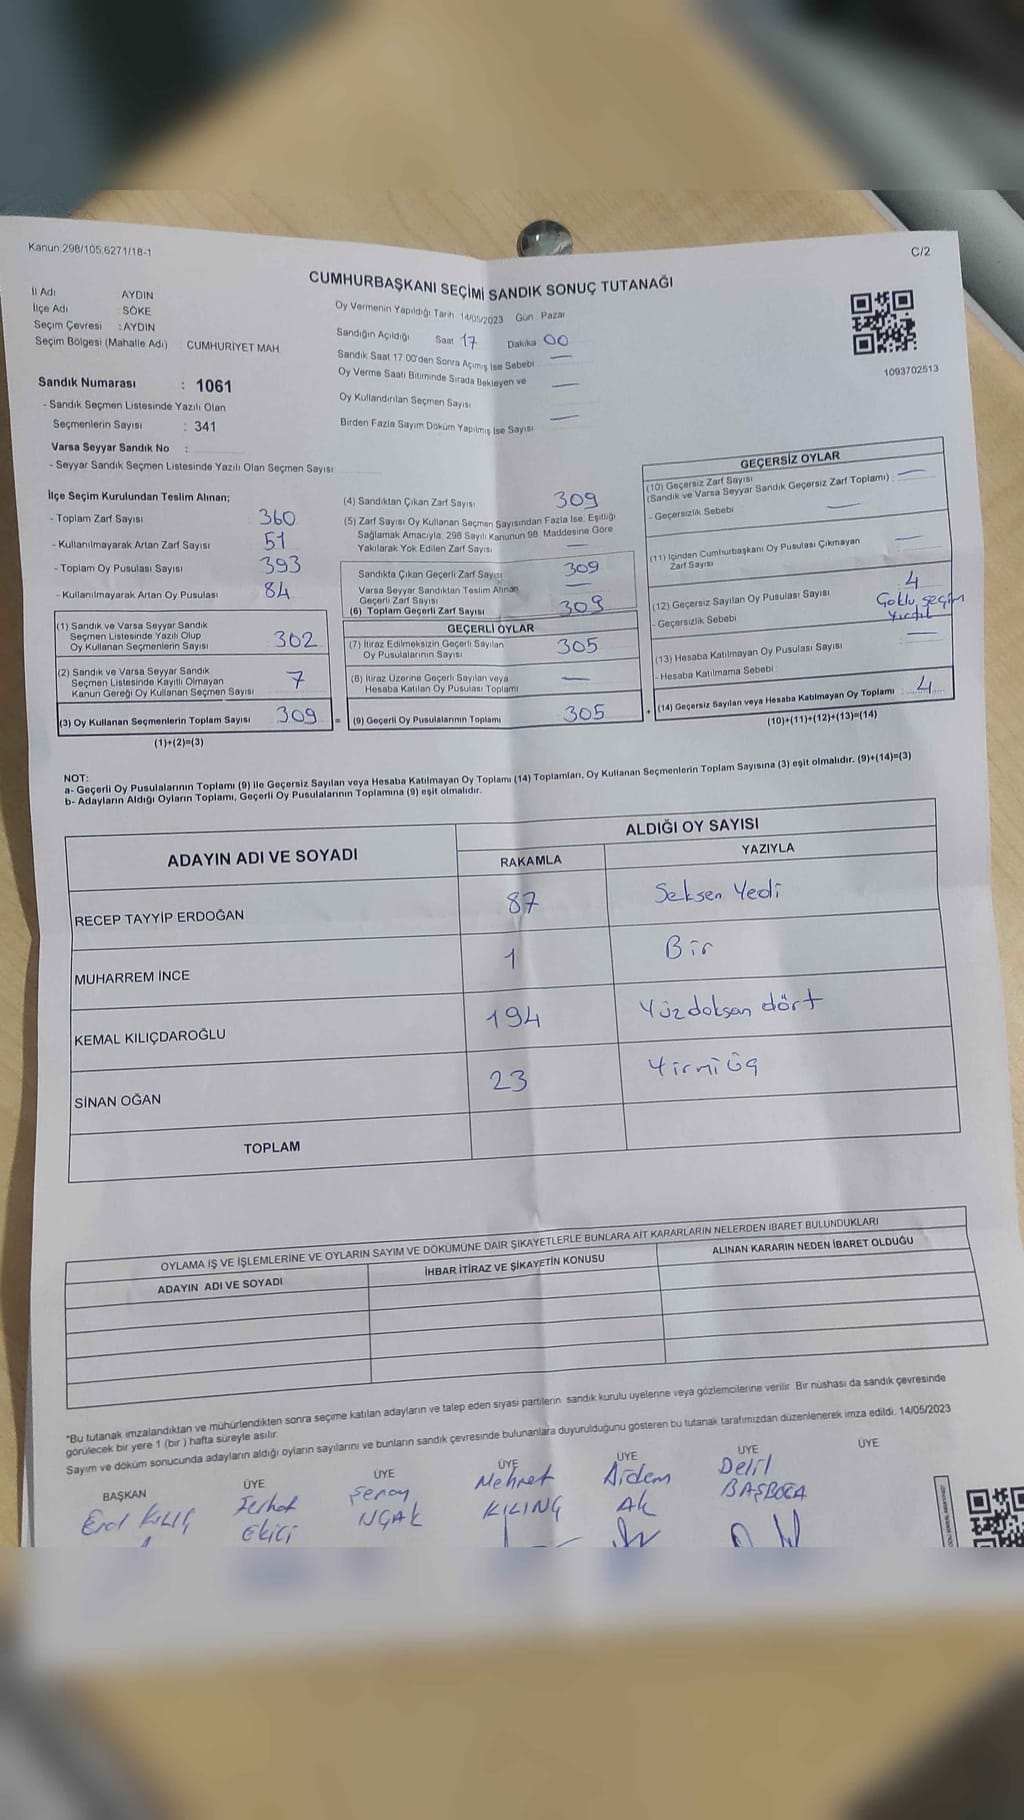 Kanun:298/105,6271/18-1
C/2
CUMHURBAŞKANI SEÇİMİ SANDIK SONUÇ TUTANAĞI
İl Adı : AYDIN
İlçe Adı : SÖKE
Seçim Çevresi : AYDIN
Seçim Bölgesi (Mahalle Adı) : CUMHURİYET MAH.
Sandık Numarası : 1061
- Sandık Seçmen Listesinde Yazılı Olan
Seçmenlerin Sayısı : 341
Varsa Seyyar Sandık No :
- Seyyar Sandık Seçmen Listesinde Yazılı Olan Seçmen Sayısı
Oy Vermenin Yapıldığı Tarih 14/05/2023 Gün : Pazar
Sandığın Açıldığı Saat 17 Dakika 00
Sandık Saat 17.00'den Sonra Açmış İse Sebebi —
Oy Verme Saati Bitiminde Sırada Bekleyen ve
Oy Kullandırılan Seçmen Sayısı —
Birden Fazla Sayım Döküm Yapılmış İse Sayısı —
1093702513
İlçe Seçim Kurulundan Teslim Alınan;
- Toplam Zarf Sayısı 360
- Kullanılmayarak Artan Zarf Sayısı 51
- Toplam Oy Pusulası Sayısı 393
- Kullanılmayarak Artan Oy Pusulası 84
(1) Sandık ve Varsa Seyyar Sandık
Seçmen Listesinde Yazılı Olup
Oy Kullanan Seçmenlerin Sayısı 302
(2) Sandık ve Varsa Seyyar Sandık
Seçmen Listesinde Kayıtlı Olmayan
Kanun Gereği Oy Kullanan Seçmen Sayısı 7
(3) Oy Kullanan Seçmenlerin Toplam Sayısı 309 =
(1)+(2)=(3)
(4) Sandıktan Çıkan Zarf Sayısı 309
(5) Zarf Sayısı Oy Kullanan Seçmen Sayısından Fazla İse, Eşitliği
Sağlamak Amacıyla, 298 Sayılı Kanunun 98. Maddesine Göre
Yakılarak Yok Edilen Zarf Sayısı —
Sandıkta Çıkan Geçerli Zarf Sayısı 309
Varsa Seyyar Sandıktan Teslim Alınan
Geçerli Zarf Sayısı —
(6) Toplam Geçerli Zarf Sayısı 309
GEÇERLİ OYLAR
(7) İtiraz Edilmeksizin Geçerli Sayılan
Oy Pusulalarının Sayısı 305
(8) İtiraz Üzerine Geçerli Sayılan veya
Hesaba Katılan Oy Pusulası Toplamı —
(9) Geçerli Oy Pusulalarının Toplamı 305 +
GEÇERSİZ OYLAR
(10) Geçersiz Zarf Sayısı
(Sandık ve Varsa Seyyar Sandık Geçersiz Zarf Toplamı) : —
- Geçersizlik Sebebi —
(11) İçinden Cumhurbaşkanı Oy Pusulası Çıkmayan
Zarf Sayısı —
(12) Geçersiz Sayılan Oy Pusulası Sayısı 4
- Geçersizlik Sebebi Çoklu seçim
Yırtık
(13) Hesaba Katılmayan Oy Pusulası Sayısı —
- Hesaba Katılmama Sebebi :
(14) Geçersiz Sayılan veya Hesaba Katılmayan Oy Toplamı : 4
(10)+(11)+(12)+(13)=(14)
NOT:
a- Geçerli Oy Pusulalarının Toplamı (9) ile Geçersiz Sayılan veya Hesaba Katılmayan Oy Toplamı (14) Toplamları, Oy Kullanan Seçmenlerin Toplam Sayısına (3) eşit olmalıdır. (9)+(14)=(3)
b- Adayların Aldığı Oyların Toplamı, Geçerli Oy Pusulalarının Toplamına (9) eşit olmalıdır.
ADAYIN ADI VE SOYADI
ALDIĞI OY SAYISI
RAKAMLA YAZIYLA
RECEP TAYYİP ERDOĞAN 87 Seksen Yedi
MUHARREM İNCE 1 Bir
KEMAL KILIÇDAROĞLU 194 Yüzdoksan dört
SİNAN OĞAN 23 Yirmi üç
TOPLAM
OYLAMA İŞ VE İŞLEMLERİNE VE OYLARIN SAYIM VE DÖKÜMÜNE DAİR ŞİKAYETLERLE BUNLARA AİT KARARLARIN NELERDEN İBARET BULUNDUKLARI
ADAYIN ADI VE SOYADI İHBAR İTİRAZ VE ŞİKAYETİN KONUSU ALINAN KARARIN NEDEN İBARET OLDUĞU
"Bu tutanak imzalandıktan ve mühürlendikten sonra seçime katılan adayların ve talep eden siyasi partilerin sandık kurulu üyelerine veya gözlemcilerine verilir. Bir nüshası da sandık çevresinde
görülecek bir yere 1 (bir ) hafta süreyle asılır.
Sayım ve döküm sonucunda adayların aldığı oyların sayılarını ve bunların sandık çevresinde bulunanlara duyurulduğunu gösteren bu tutanak tarafımızdan düzenlenerek imza edildi. 14/05/2023
BAŞKAN ÜYE ÜYE ÜYE ÜYE ÜYE ÜYE
Erol KILIÇ
Ferhat Ekici
Şenay
Mehmet KILINÇ
Ak
Delil BAŞBOĞA